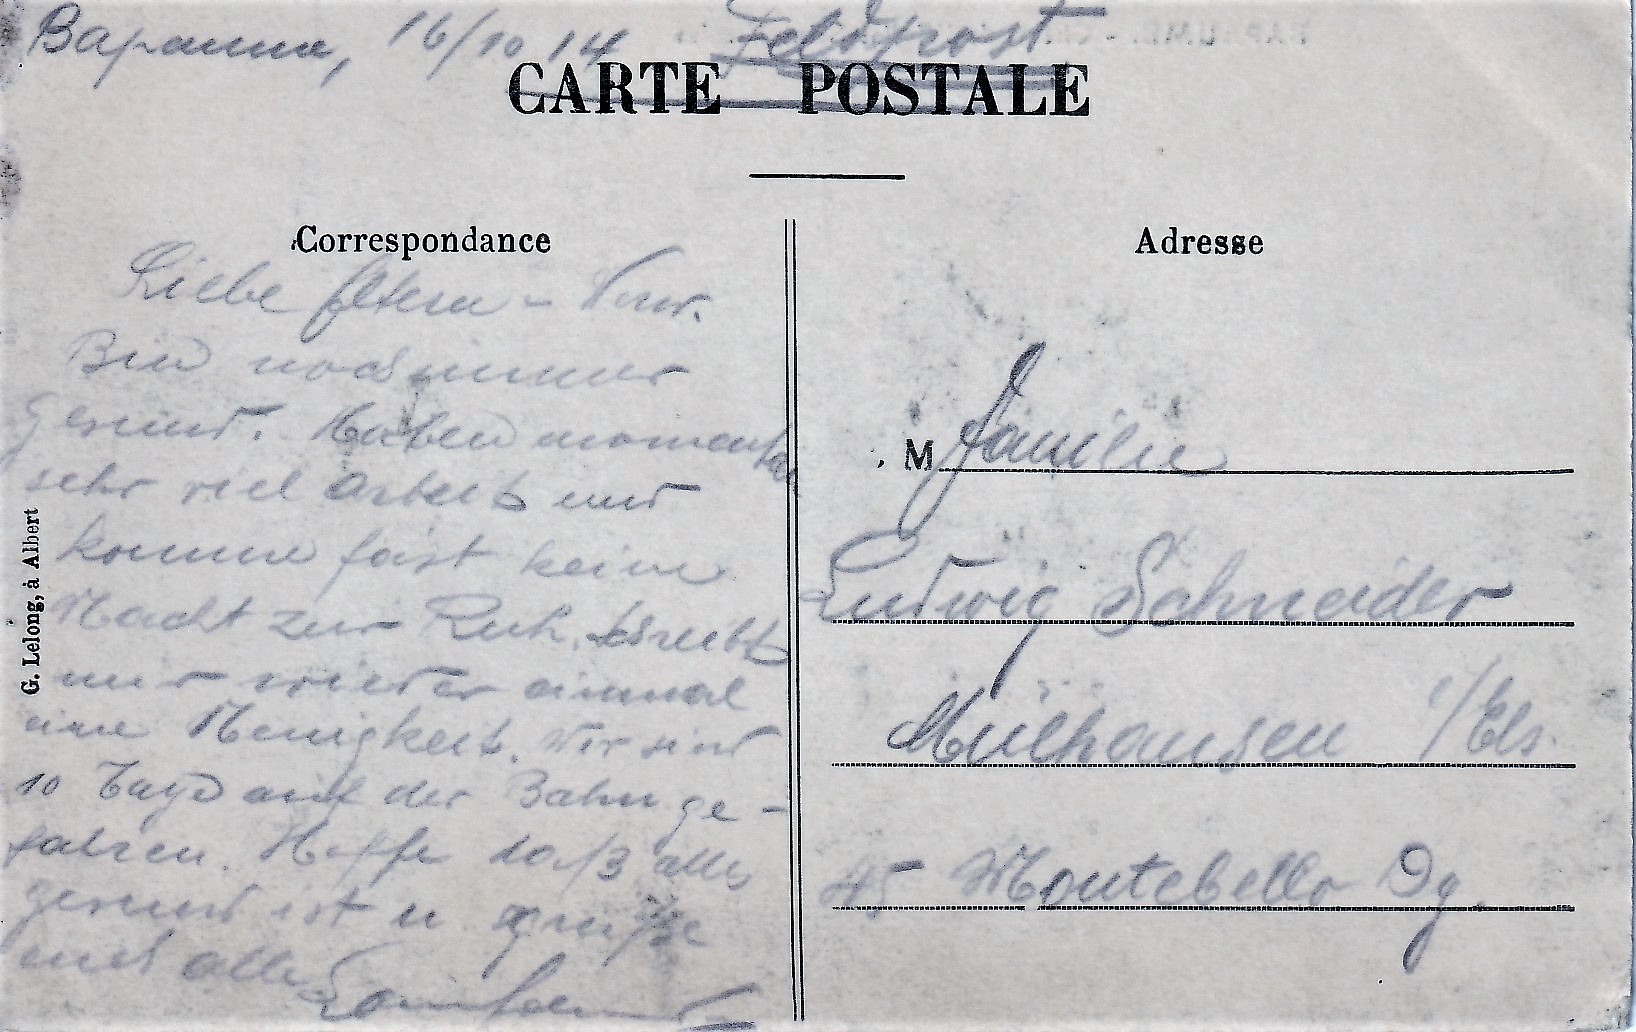 Bapaume, 16/10 14 Feldpost
CARTE POSTALE
Correspondance
Liebe Eltern
Bin noch immer
gesund. Haben momentan
sehr viel Arbeit und
komme fast keine
Nacht zur Ruh. Schreibt
mir wieder einmal
eine Neuigkeit. Wir sind
10 Tage auf der Bahn ge-
fahren. Hoffe daß alles
gesund ist u grüße
euch alle
G. Lelong, à Albert
Adresse
M Familie
Ludwig Schneider
Mülhausen i/Els.
45 Montebello Dg.